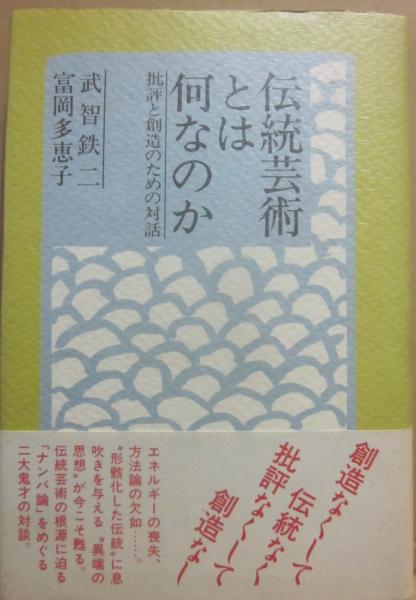 伝統芸術
とは
何なのか
批評と創造のための対話
武智鉄二
富岡多恵子
創造なくして
伝統なく
批評なくして
創造なし
エネルギーの喪失、
方法論の欠如……。
“形骸化した伝統”に息
吹きを与える〝異端の
思想〟が今こそ甦る。
伝統芸術の根源に迫る
「ナンバ論」をめぐる
二大鬼才の対談。